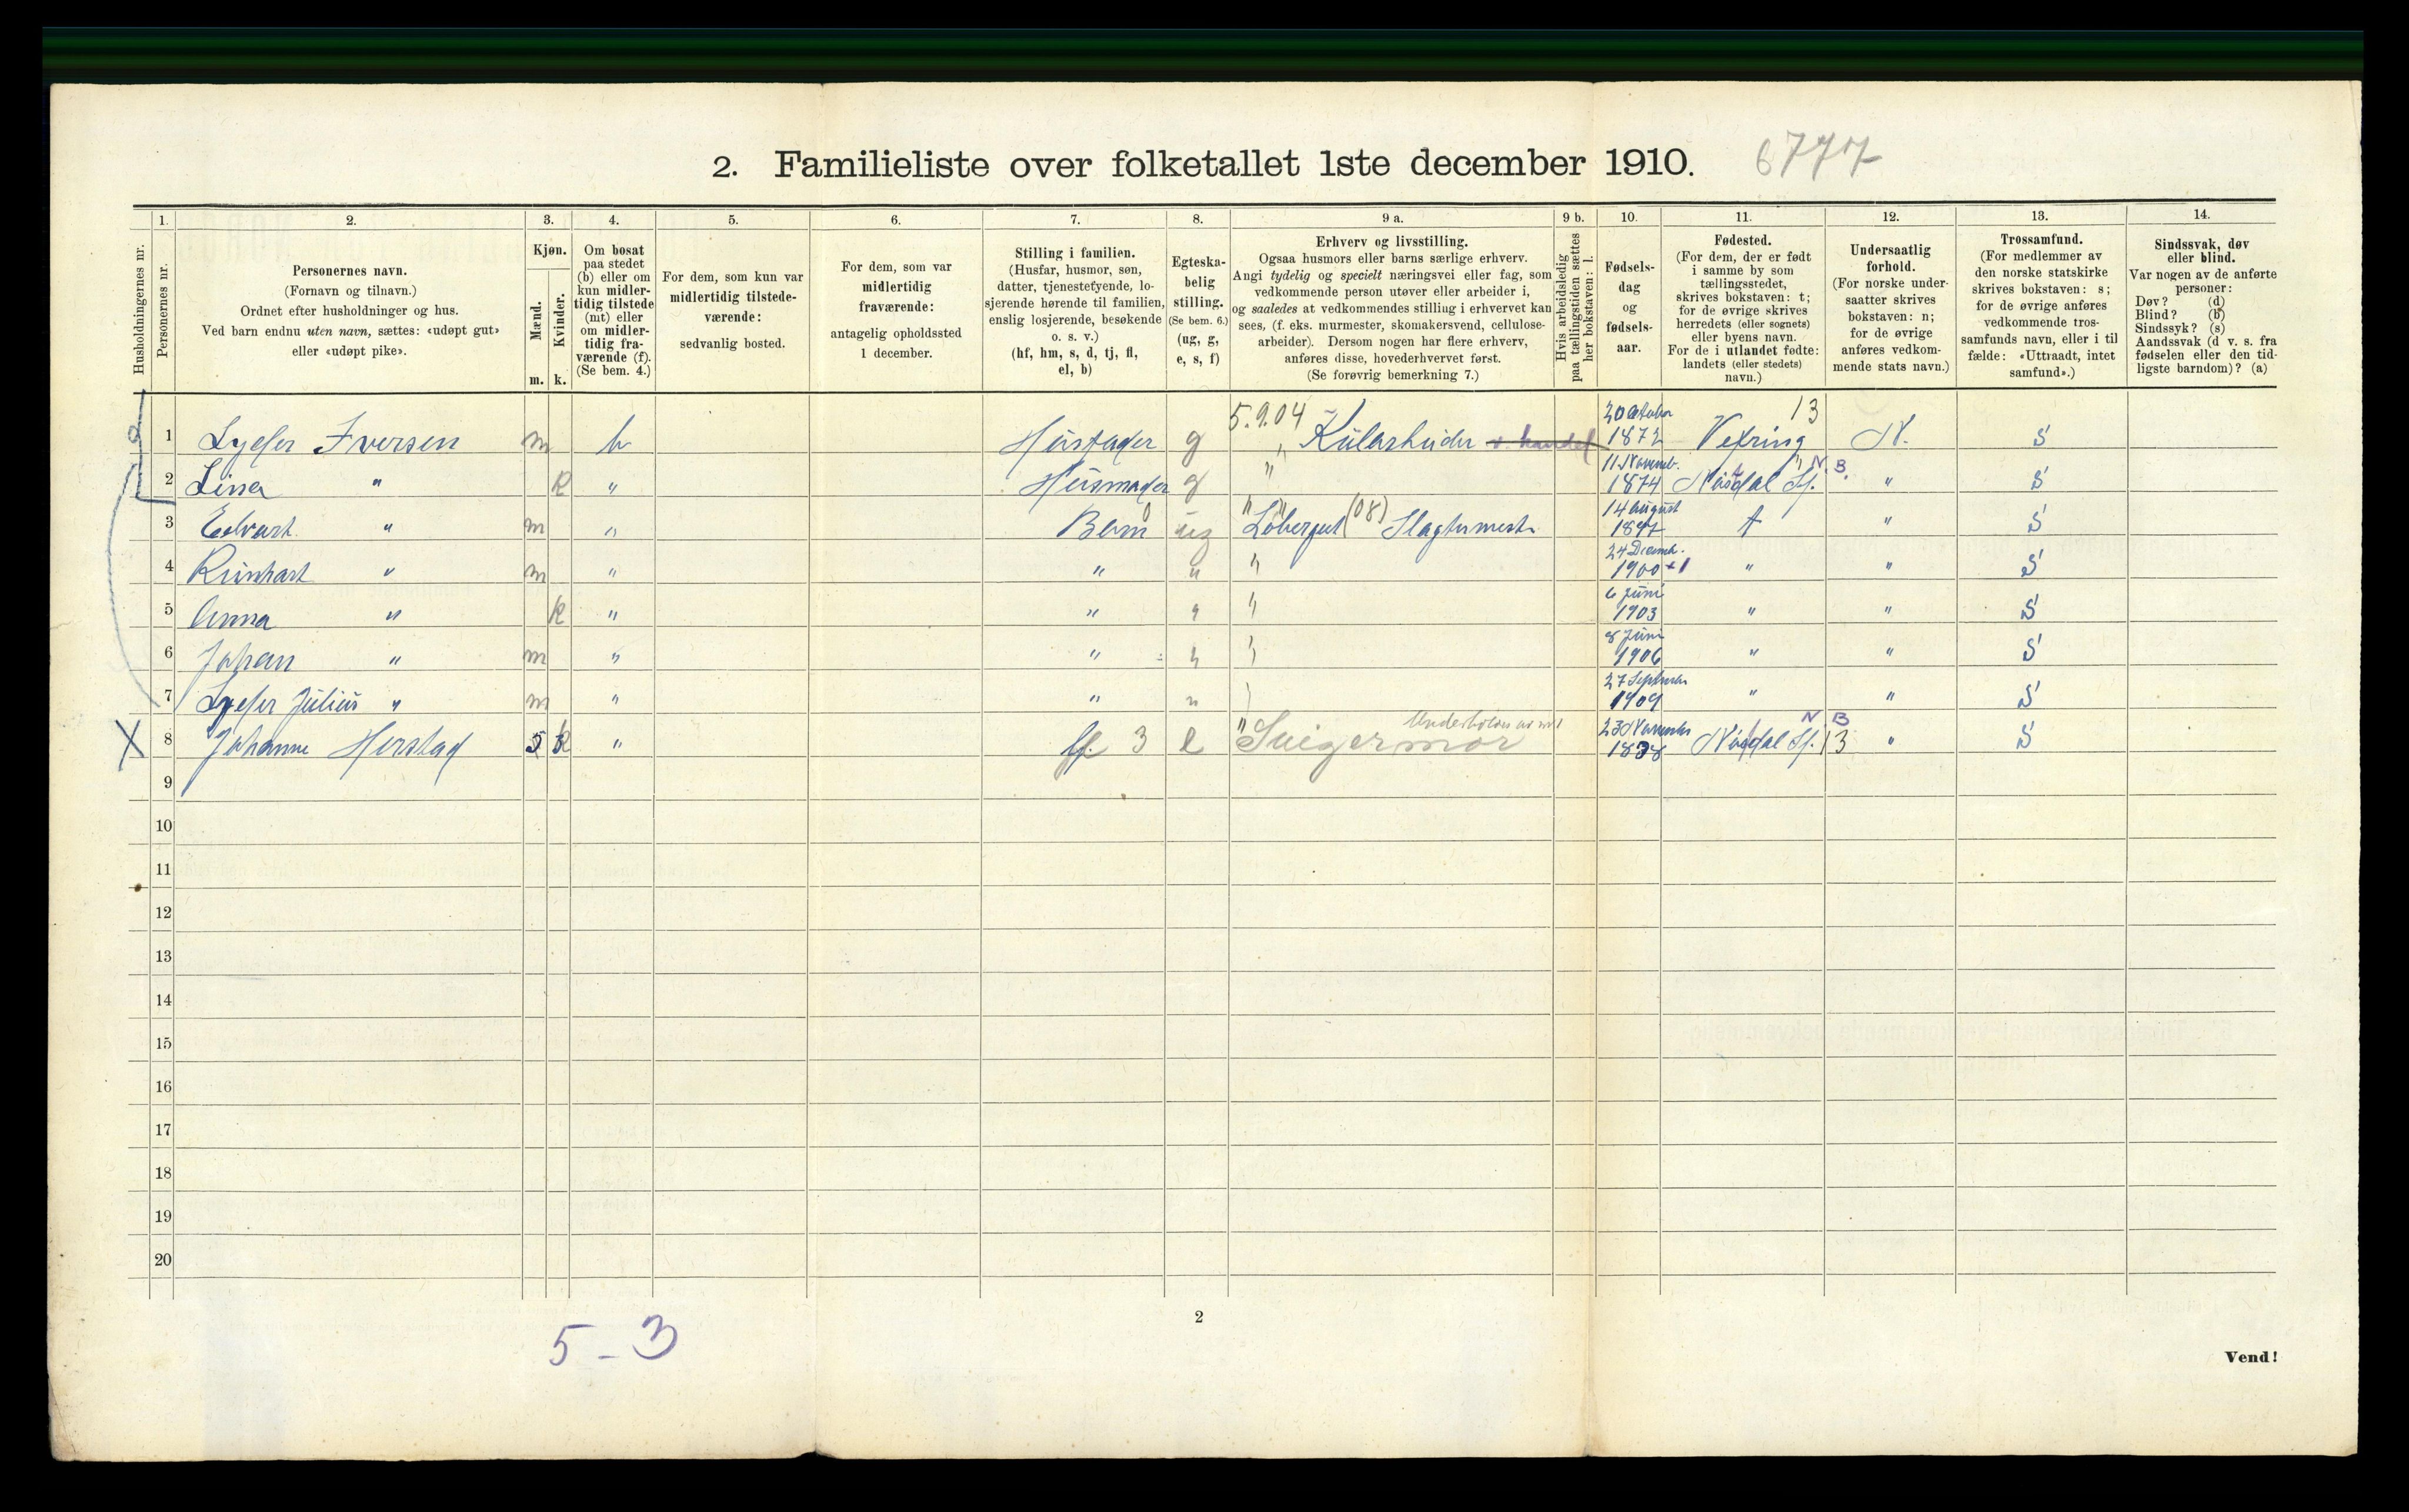 2. Familieliste over folketallet 1ste december 1910. 6777
1. 2. 3. 4. 5. 6. 7. 8. 9 a. 9 b. 10. 11. 12. 13. 14.
Husholdningernes nr.
Personernes nr.
Personernes navn.
(Fornavn og tilnavn.)
Ordnet efter husholdninger og hus.
Ved barn endnu uten navn, sættes: «udøpt gut»
eller «udøpt pike».
Kjøn.
Mænd.
Kvinder.
m. k.
Om bosat
paa stedet
(b) eller om
kun midler-
tidig tilstede
(mt) eller
om midler-
tidig fra-
værende (f).
(Se bem. 4.)
For dem, som kun var
midlertidig tilstede-
værende:
sedvanlig bosted.
For dem, som var
midlertidig
fraværende:
antagelig opholdssted
1 december.
Stilling i familien.
(Husfar, husmor, søn,
datter, tjenestetyende, lo-
sjerende hørende til familien,
enslig losjerende, besøkende
o. s. v.)
(hf, hm, s, d, tj, fl,
el, b)
Egteska-
belig
stilling.
(Se bem. 6.)
(ug, g,
e, s, f)
Erhverv og livsstilling.
Ogsaa husmors eller barns særlige erhverv.
Angi tydelig og specielt næringsvei eller fag, som
vedkommende person utøver eller arbeider i,
og saaledes at vedkommendes stilling i erhvervet kan
sees, (f. eks. murmester, skomakersvend, cellulose-
arbeider). Dersom nogen har flere erhverv,
anføres disse, hovederhvervet først.
(Se forøvrig bemerkning 7.)
Hvis arbeidsledig
paa tællingstiden sættes
her bokstaven: l.
Fødsels-
dag
og
fødsels-
aar.
Fødested.
(For dem, der er født
i samme by som
tællingsstedet,
skrives bokstaven: t;
for de øvrige skrives
herredets (eller sognets)
eller byens navn.
For de i utlandet fødte:
landets (eller stedets)
navn.)
Undersaatlig
forhold.
(For norske under-
saatter skrives
bokstaven: n;
for de øvrige
anføres vedkom-
mende stats navn.)
Trossamfund.
(For medlemmer av
den norske statskirke
skrives bokstaven: s;
for de øvrige anføres
vedkommende tros-
samfunds navn, eller i til
fælde: «Uttraadt, intet
samfund».)
Sindssvak, døv
eller blind.
Var nogen av de anførte
personer:
Døv? (d)
Blind? (b)
Sindssyk? (s)
Aandssvak (d v. s. fra
fødselen eller den tid-
ligste barndom)? (a)
5.9.04 20 13
1 Lyder Iversen m b Husfader g 1872 N. S
11 N B
2 Lina " K " Husmoder g " 1874 " S
(08) 14 august
3 Edvart " m " Barn ug 1897 t " S
24
4 " m " " " " 1900 +1 " " S
6 Juni
5 Anna " K " " " " 1903 " " S
8 Juni
6 Johan " m " " " " 1906 " " S
27
7 Lyder Julius " m " " " 1909 " " S
N B
X 8 Johanne Herstad 5 3 K " fl. 3 e " Svigermor 23 1838 13 " S
9
10
11
12
13
14
15
16
17
18
19
20
5 - 3
2
Vend!